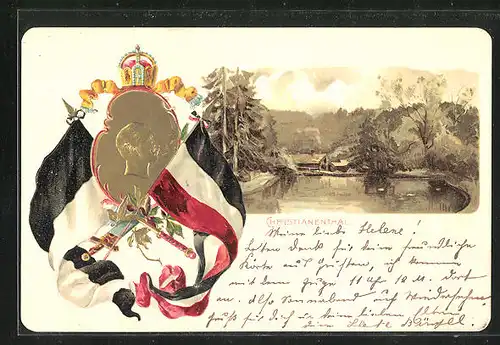 CHRISTIANENTHAL
Meine liebe Helene!
Besten Dank für deine freundliche
Karte auf Grüßen, ich komme
mit dem Zuge 11 Uhr 10 M. Dort
an. Also Sonnabend auf Wiedersehen
Gruß für dich u. deine lieben Eltern
dein